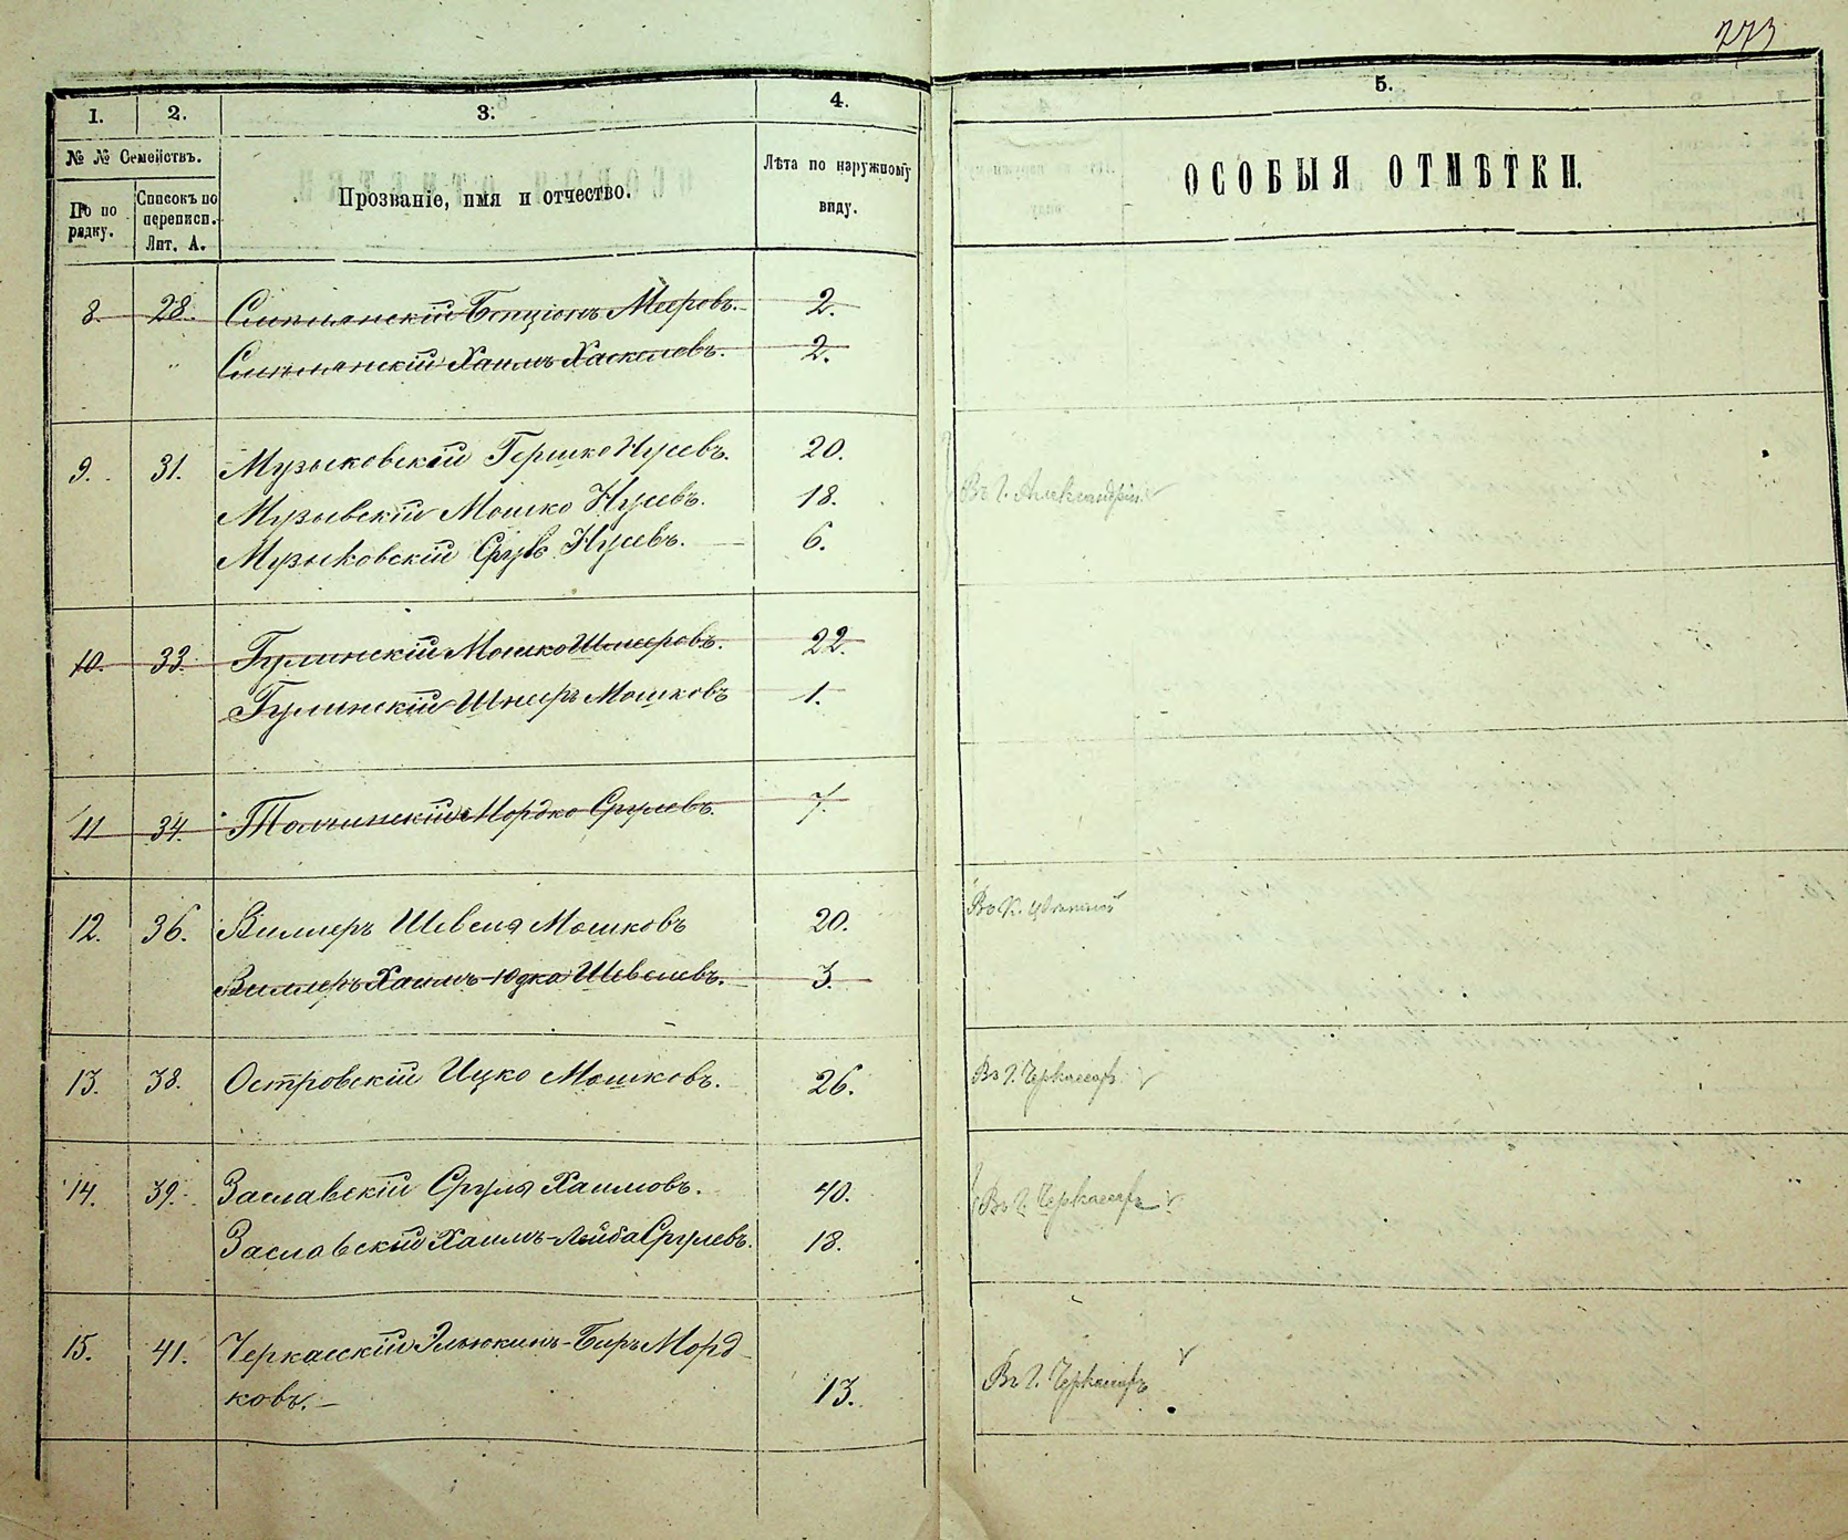 273
1. 2. 3. 4. 5.
№ № Семействъ.
По по рядку.
Списокъ по переписи. Лит. А.
Прозваніе, имя и отчество.
Лѣта по наружному виду.
ОСОБЫЯ ОТМѢТКИ.
8. 28. Бенціонъ Мееровъ. 2.
" Хаимъ Хаскелевъ. 2.
9. 31. Музыковскій Гершко Нусевъ. 20.
Музывскій Мошко Нусевъ. 18. Въ г. Александріи
Музыковскій Сруль Нусевъ. 6.
10. 33. Гулинскій Мошко Шмееровъ. 22.
Гулинскій Шмееръ Мошковъ 1.
11 34. Толчинскій Мордко Срулевъ. 7.
12. 36. Виллеръ Шевеля Мошковъ 20. Въ
Виллеръ Хаимъ-Юдко Шевелевъ. 3.
13. 38. Островскій Ицко Мошковъ. 26. Въ г. Черкассахъ
14. 39. Заславскій Сруля Хаимовъ. 40. Въ г. Черкассахъ
Заславскій Хаимъ-Лейба Срулевъ. 18.
15. 41. Черкасскій Эльюкимъ-Беръ Морд
ковъ. 13. Въ г. Черкассахъ